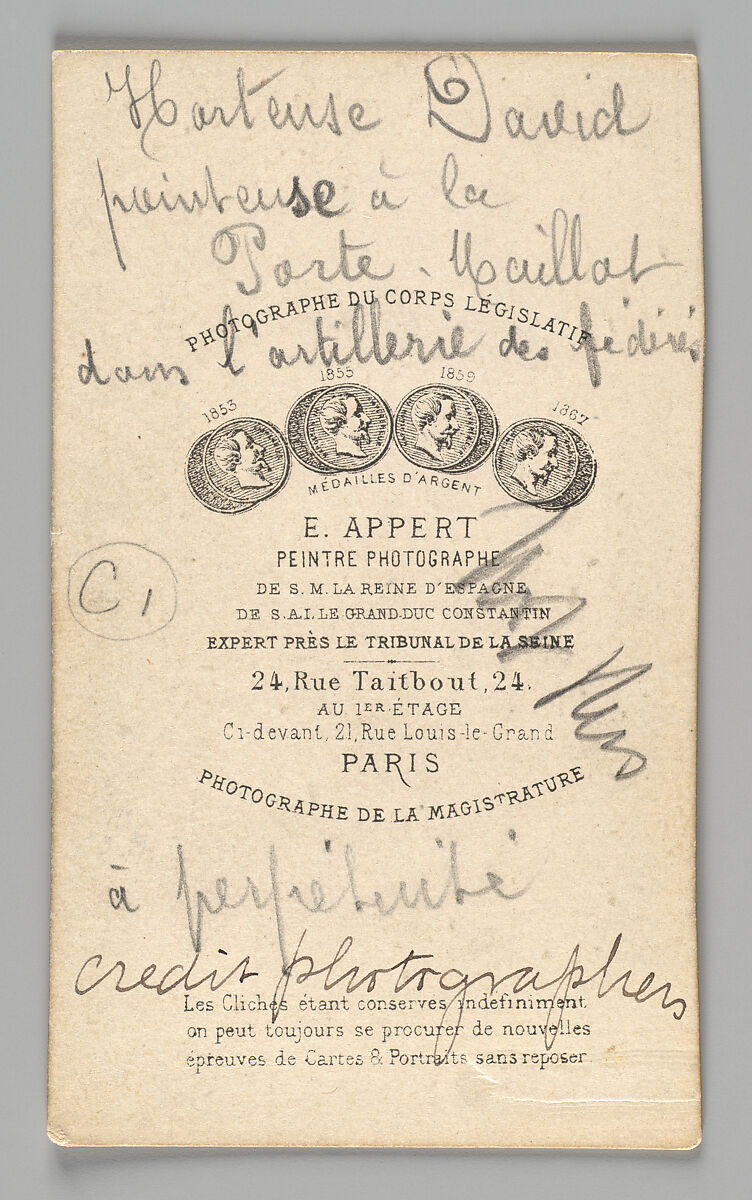 Hortense David
pointeuse à la
Porte-Maillot
PHOTOGRAPHE DU CORPS LÉGISLATIF
dans l'artillerie des fédérés
1853 1855 1859 1867
MÉDAILLES D'ARGENT
E. APPERT
PEINTRE PHOTOGRAPHE
DE S. M. LA REINE D'ESPAGNE
C 1
DE S.A.I. LE GRAND-DUC CONSTANTIN
EXPERT PRÈS LE TRIBUNAL DE LA SEINE
24, Rue Taitbout, 24.
AU 1ER ÉTAGE
Ci-devant, 21, Rue Louis-le-Grand
PARIS
PHOTOGRAPHE DE LA MAGISTRATURE
à perpétuité
credit photographers
Les Clichés étant conservés indéfiniment
on peut toujours se procurer de nouvelles
épreuves de Cartes & Portraits sans reposer.